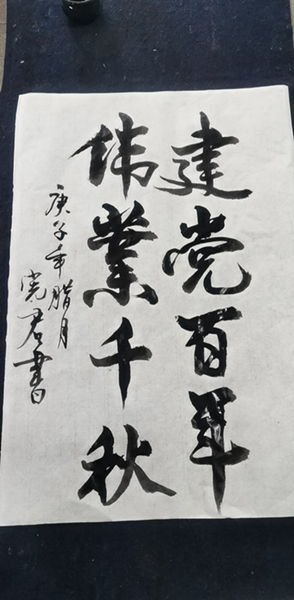 建党百年
伟業千秋
庚子年腊月
党君書